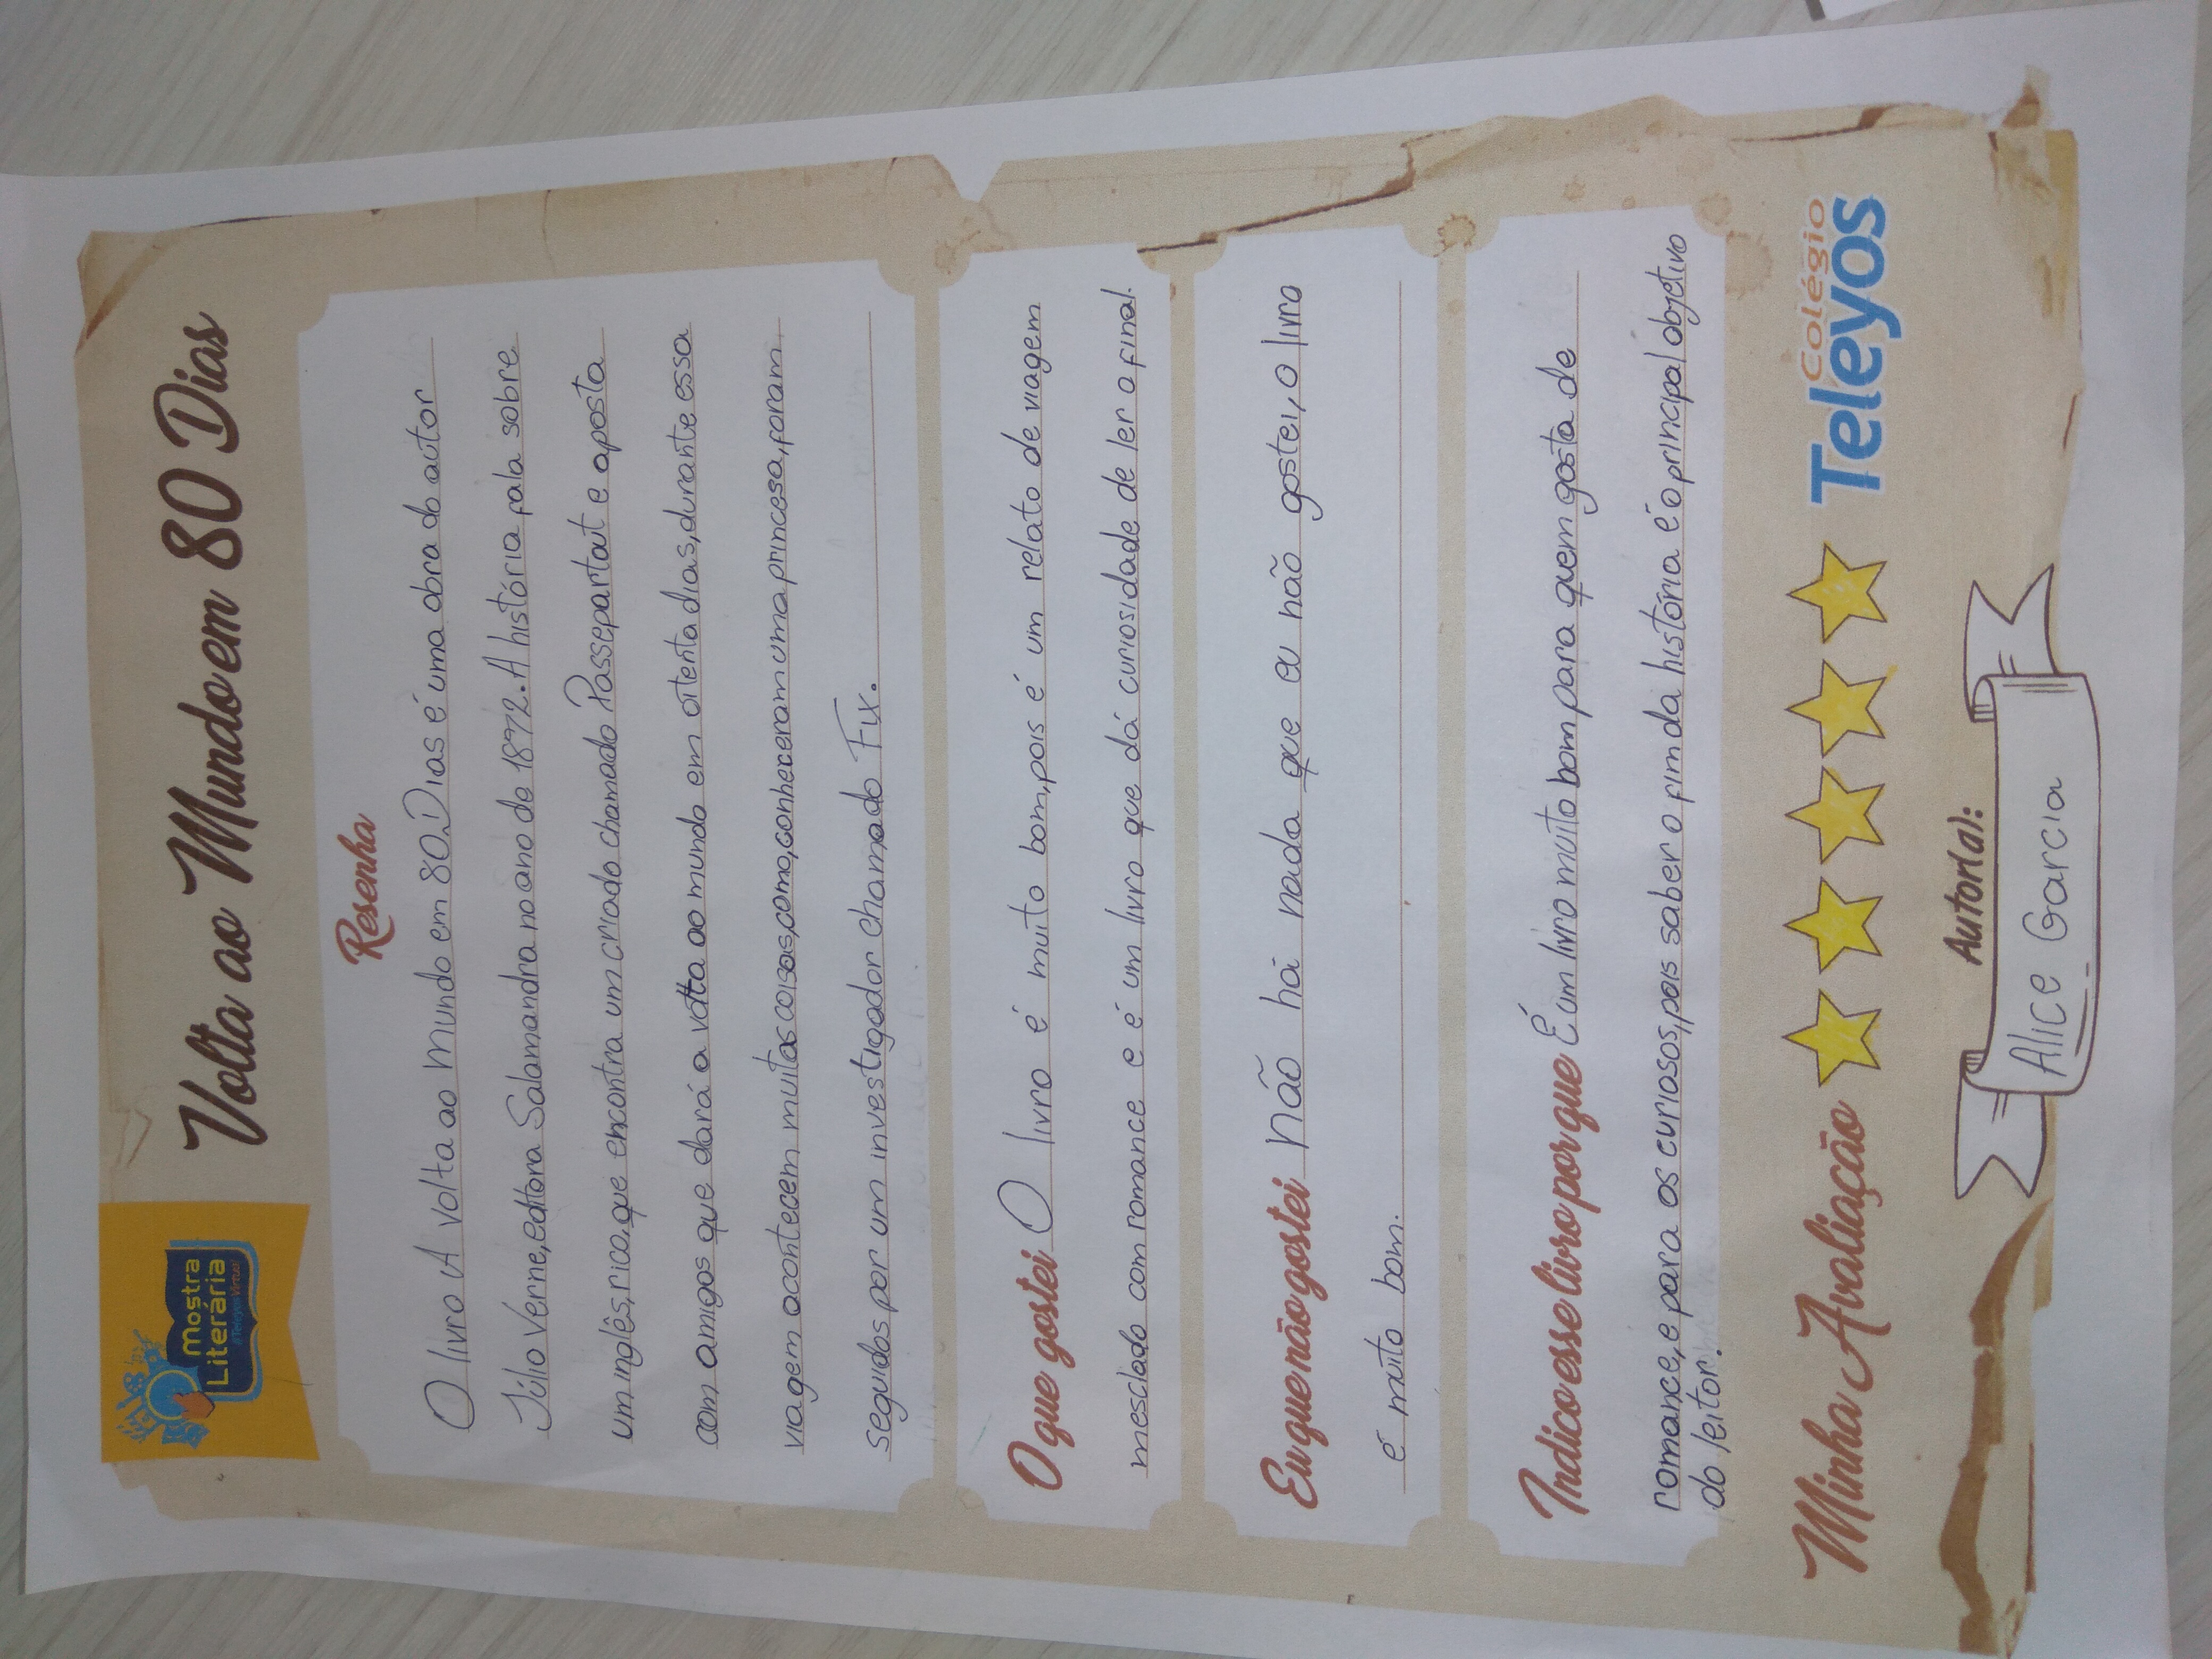 mostra
Literária
#TeleyosVirtual
Volta ao Mundo em 80 Dias
Resenha
O livro A volta ao mundo em 80 Dias é uma obra do autor
Júlio Verne, editora Salamandra no ano de 1872. A história fala sobre
um inglês, rico, que encontra um criado chamado Passepartout e aposta
com amigos que dará a volta ao mundo em oitenta dias, durante essa
viagem acontecem muitas coisas, como, conheceram uma princesa, foram
seguidos por um investigador chamado Fix.
O que gostei O livro é muito bom, pois é um relato de viagem
mesclado com romance e é um livro que dá curiosidade de ler o final.
Eu que não gostei Não há nada que eu não gostei, o livro
é muito bom.
Indico esse livro por que É um livro muito bom para quem gosta de
romance, e para os curiosos, pois saber o fim da história é o principal objetivo
do leitor.
Minha Avaliação
Colégio
Teleyos
Autor(a):
Alice Garcia